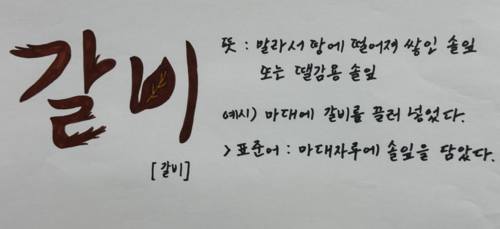 갈비
[갈비]
뜻 : 말라서 땅에 떨어져 쌓인 솔잎
또는 땔감용 솔잎
예시) 마대에 갈비를 끌러 넣었다.
> 표준어 : 마대자루에 솔잎을 담았다.